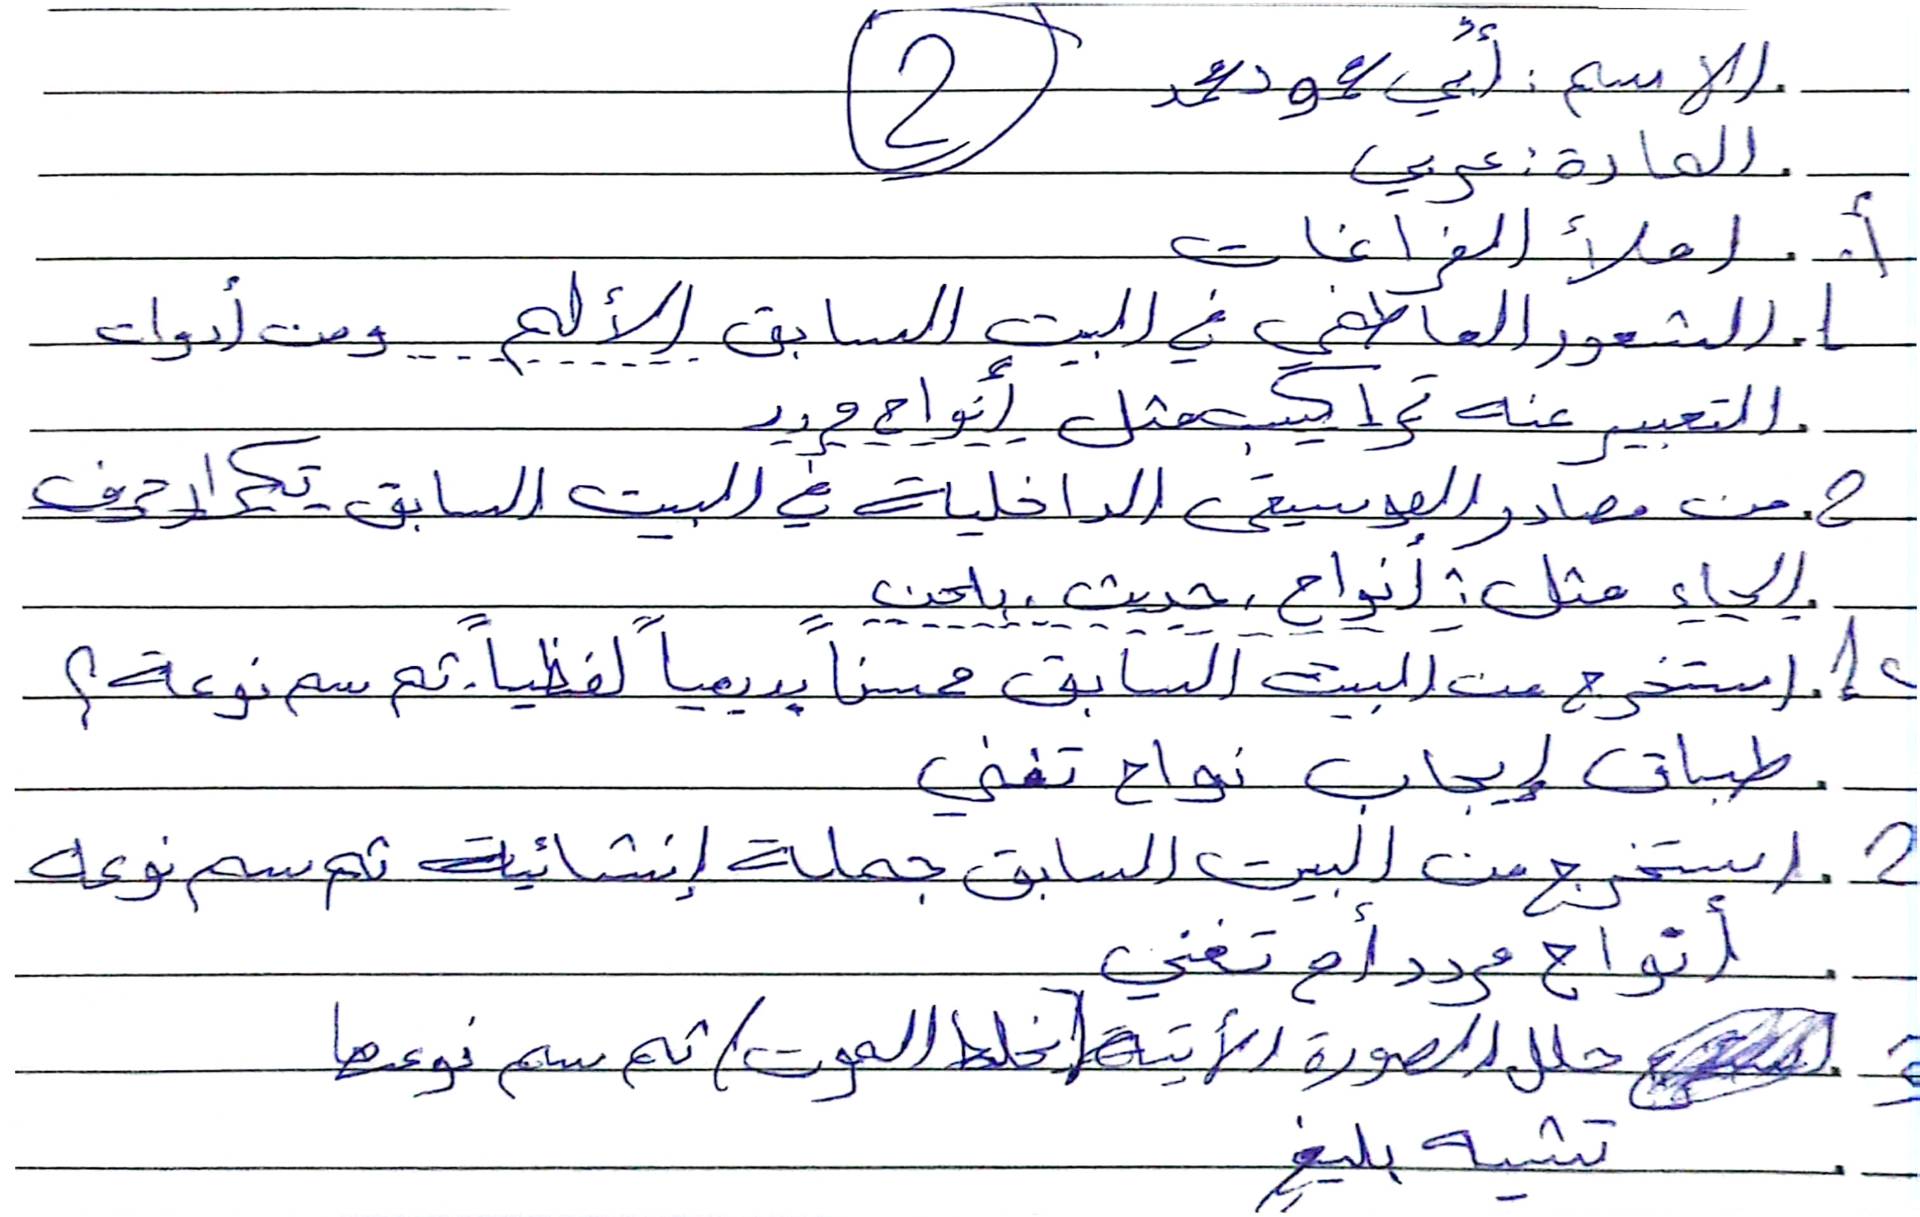 2
الاسم : أُبي
المادة : عربي
أ. املأ الفراغات
1. الشعور العاطفي في البيت السابق الألم ... ومن أدوات
التعبير عنه تراكيب مثل أنواح مريد
2. من مصادر الموسيقى الداخلية في البيت السابق تكرار حرف
الحاء مثل : أنواح ، حديث ، بلحن
1. استخرج من البيت السابق محسناً بديعياً لفظياً. ثم سم نوعة ؟
طباق إيجاب نواح تغني
2. استخرج من البيت السابق جملة إنشائية ثم سم نوعه
أنواح مردد أم تغني
3. حلل الصورة الأتية (خلط الموت) ثم سم نوعها
تشبيه بليغ